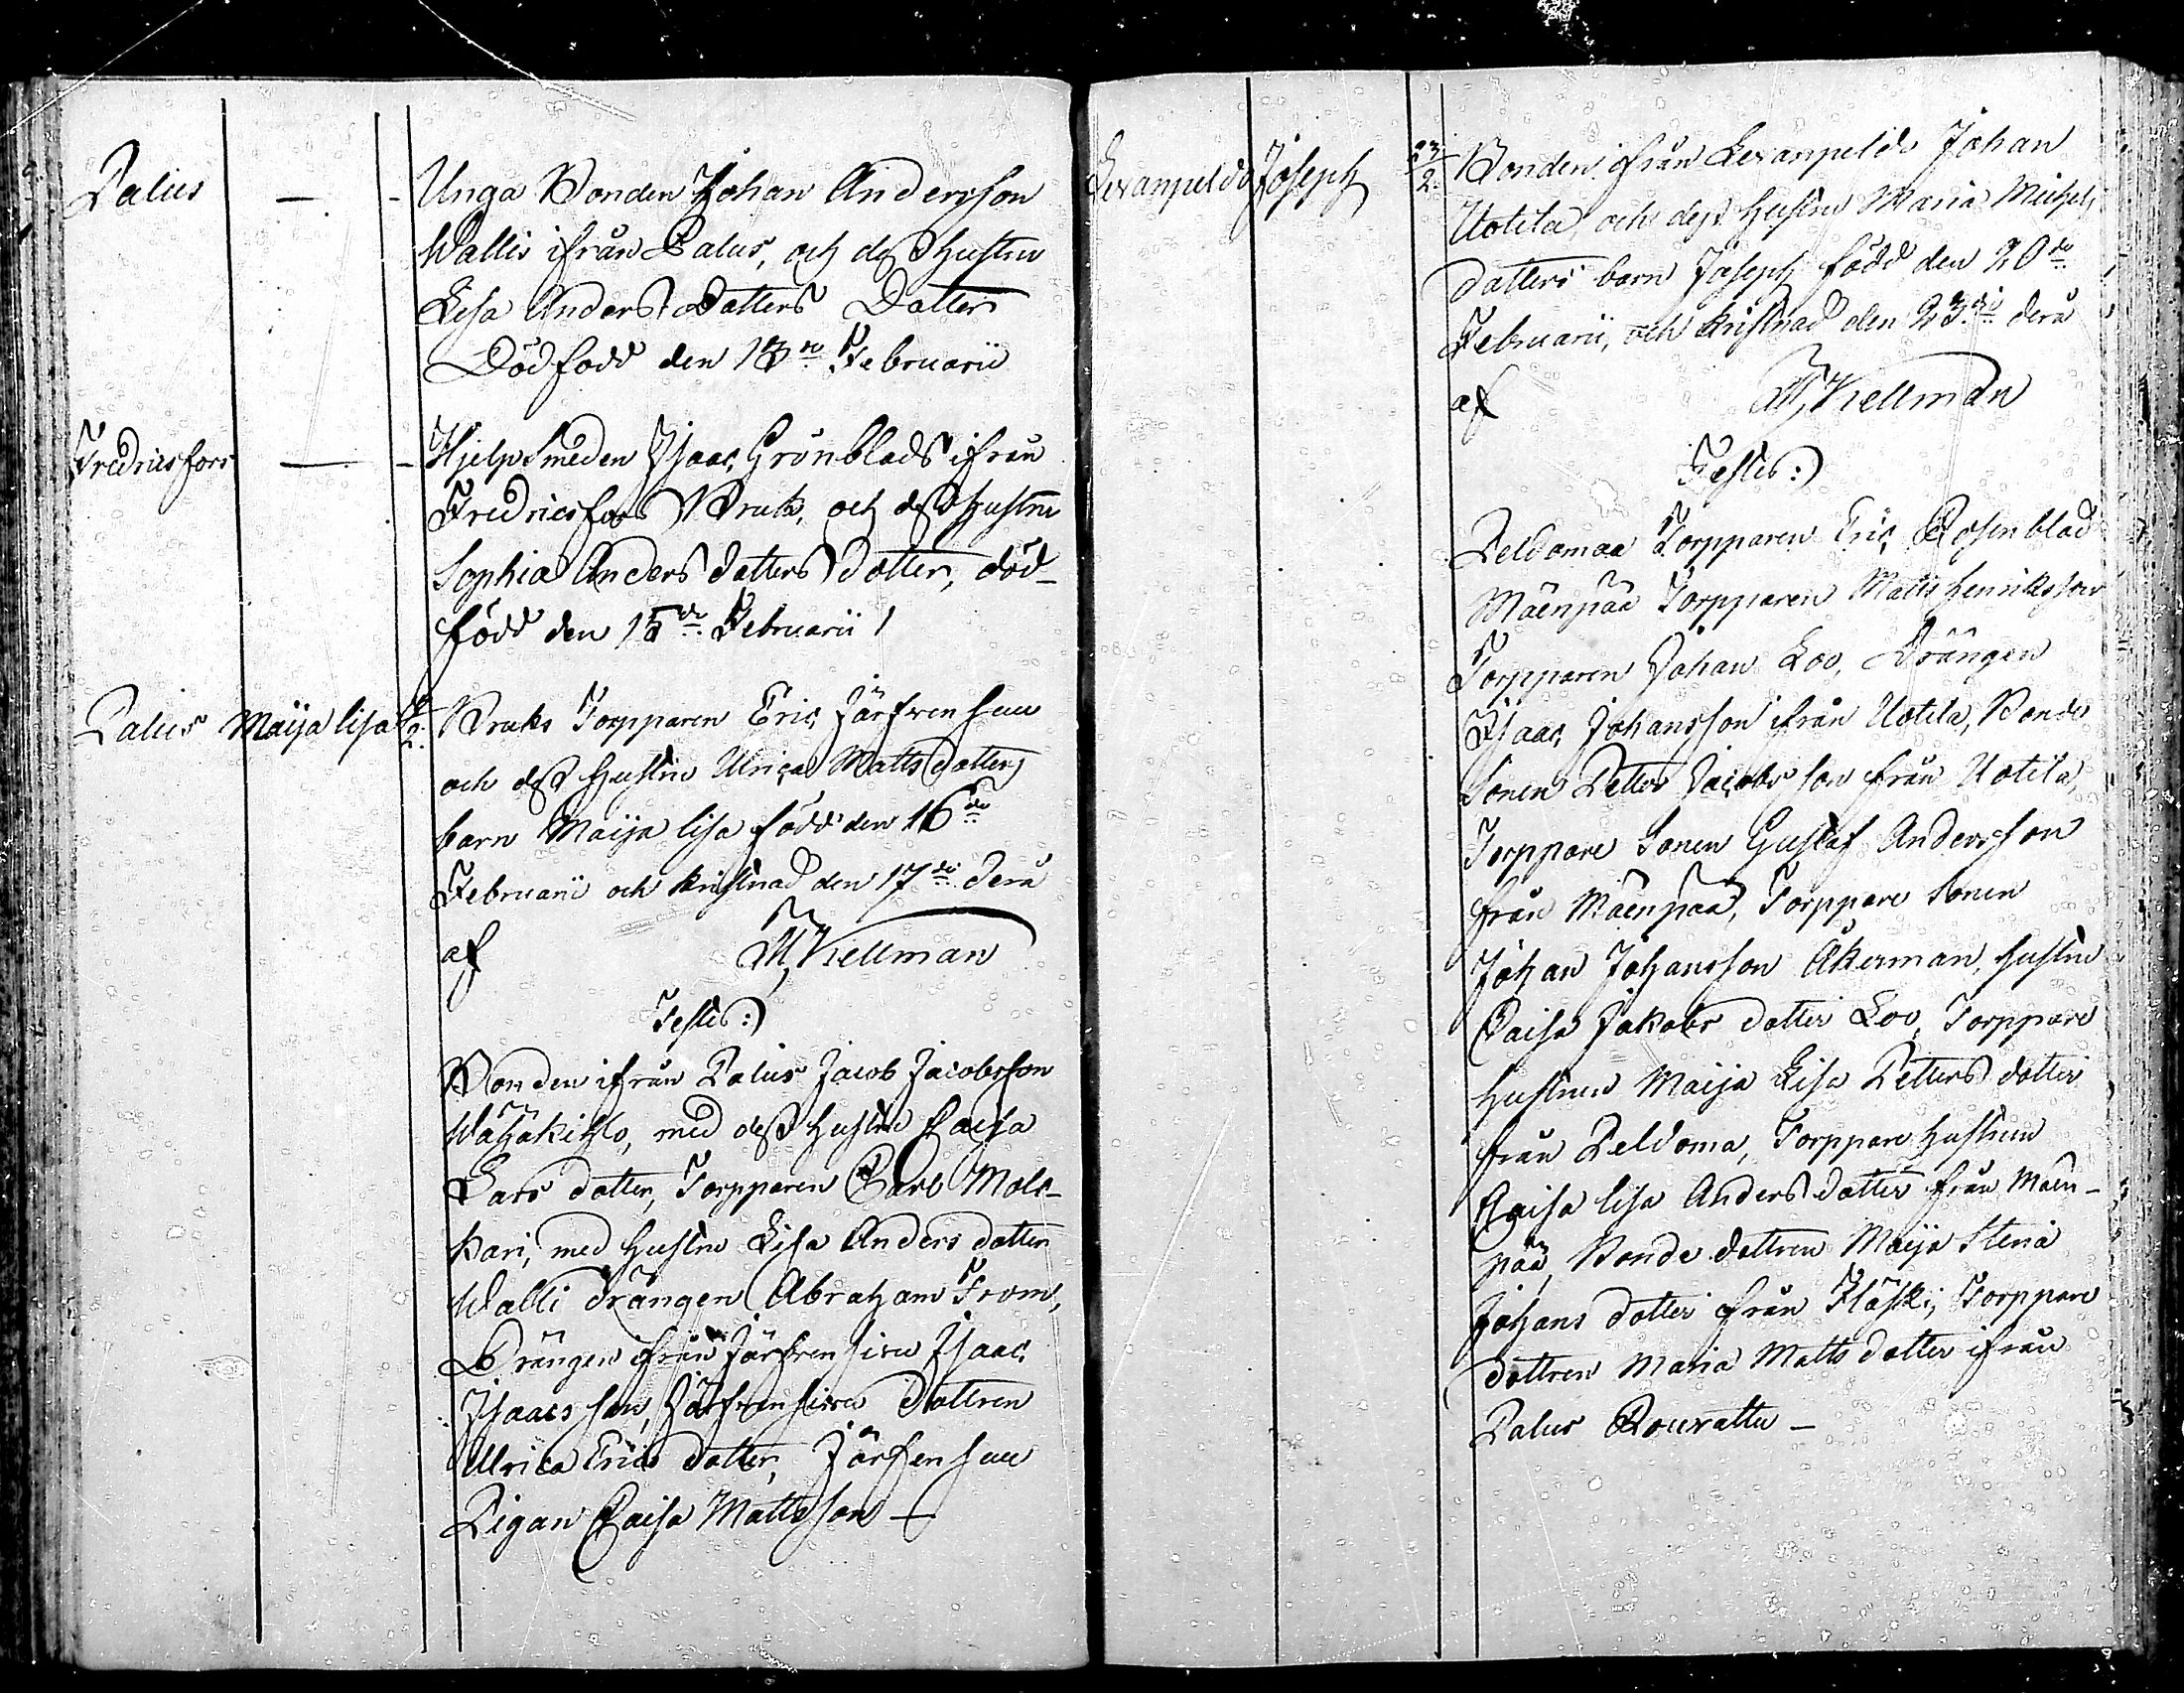 Palus — - Unga Bonden Johan Andersson
Wallis ifrån Palus, och dess Hustru
Lisa Anders Datters Datter
Död född den 13de Februarii
Fredricsfors — - Hjelp Smeden Isaac Grönblads ifrån
Fredricsfors Bruk, och dess Hustru
Sophia Anders datters dotter, död-
född den 15de Februarii
Palus Maija lisa Bruks Torpparen Eric Järfvensuu
och dess Hustru Ulrica Matts datters
barn Maija lisa född den 16de
Februarii och kristnad den 17de derå
af M Kellman
Testes:)
Bonden ifrån Palus Jacob Jacobsson
Wähäkihlo, med dess Hustru Caisa
Lars dotter, Torpparen Carl Mols-
kari, med Hustru Lisa Anders dotter
Walli drängen Abraham From,
Drängen ifrån Järfvensivu Isaac
Isaacsson, Järfvensivu Dottren
Ulrica Erics dotter, Järfvensuu
Pigan Caisa Mattsson —
Levanpeldo Joseph 23/2. Bonden ifrån Levanpeldo Johan
Uotila, och dess Hustru Maria Michels
datters barn Joseph född den 20de
Februarii, och kristnad den 23die derå
af M Kellman
Testes:)
Peldomaa Torpparen Eric Rosenblad
Mäenpää Torpparen Matts Henriksson
Torpparen Johan Loo, Drängen
Isaac Johansson ifrån Uotila, Bonde
Sonen Petter Jacobsson från Uotila,
Torppare Sonen Gustaf Andersson
från Mäenpää, Torppare Sonen
Johan Johansson Åkerman, Hustru
Caisa Jakobs dotter Loo, Torppare
Hustrun Maija Lisa Petters dotter
från Peldoma, Torppare Hustrun
Caisa lisa Anders dotter från Mäen-
pää, Bonde dottren Maija Stina
Johans dotter från Fläski, Torppare
dottren Maria Matts dotter ifrån
Palus Rouvattu —